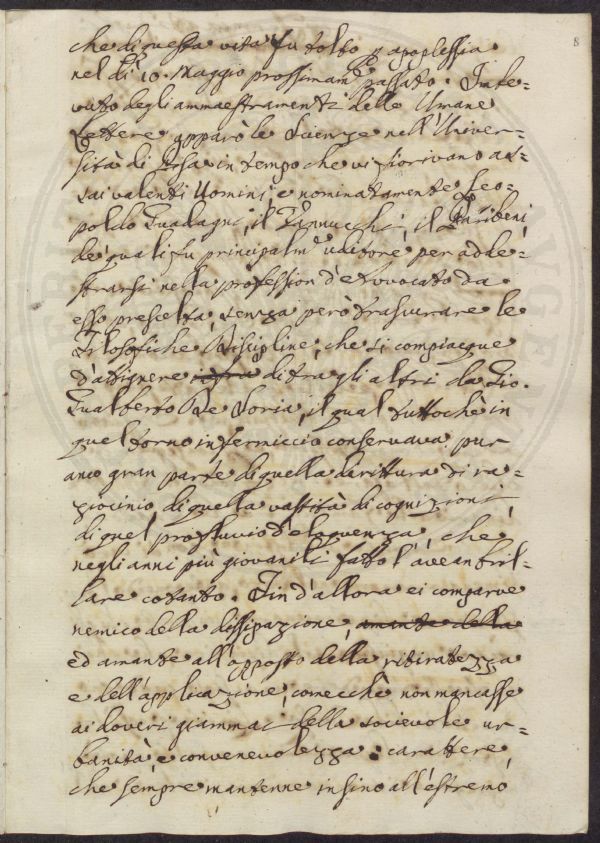 8
che di questa vita fu tolto p apoplessia
nel dì 10. Maggio prossimam.e passato. Imbe-
vuto degli ammaestramenti delle Umane
Lettere apparò le Scienze nell'Univer-
sità di Pisa in tempo che vi fiorivano as-
sai valenti Uomini, e nominatamente Leo-
poldo Guadagni, il Vannucchi, il
de' quali fu principalm.e uditore per adde-
strarsi nella profession d'Avvocato da
esso prescelta, senza però trascurare le
Filosofiche Discipline, che si compiacque
d'attignere di tra gli altri da Gio.
Gualberto De Soria, il qual tuttochè in
quel torno infermiccio conservava pur
anco gran parte di quella dirittura di ra-
ziocinio, di quella vastità di cognizioni,
di quel profluvio d'eloquenza, che
negli anni più giovanili fatto l'avean bril-
lare cotanto. Fin d'allora ei comparve
nemico della dissipazione, amante della
ed amante all'opposto della ritiratezza
e dell'applicazione, comecchè non mancasse
ai doveri giammai della socievole ur-
banità, e convenevolezza: carattere,
che sempre mantenne insino all'estremo